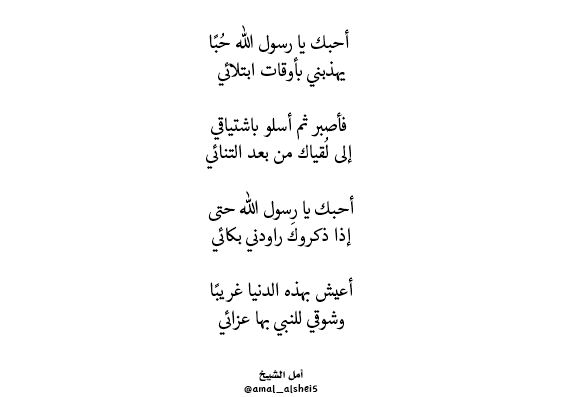 أحبك يا رسول الله حُبًا
يهذبني بأوقات ابتلائي
فأصبر ثم أسلو باشتياقي
إلى لُقياك من بعد التنائي
أحبك يا رسول الله حتى
إذا ذكروك راودني بكائي
أعيش بهذه الدنيا غريبًا
وشوقي للنبي بها عزائي
أمل الشيخ
@amal_alshei5